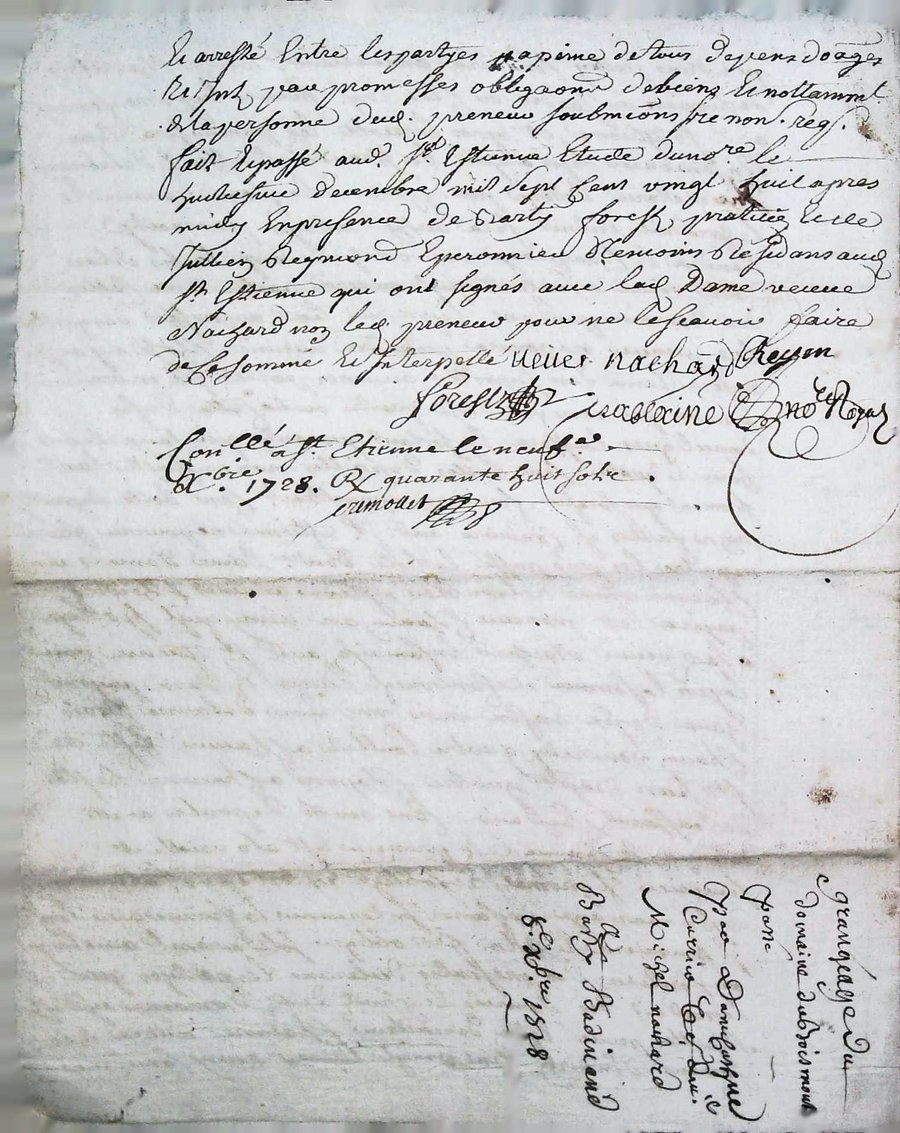 Et arresté Entre les partyes a peine de tous depens domages
par promesses obligaons de biens Et nottamment
de la personne dud. preneur soubmions re non. regs.
fait Et passé aud. St. Estienne Etude du nore. le
huictiesme decembre mil Sept Cent vingt huit apres
midy En presence de forest praticien
Jullien Reymond Eperonnier tesmoins Residans aud
St. Estienne qui ont signés avec lad. Dame veuve
Nachard non led. preneur pour ne le scavoir faire
de Ce sommé Et Interpellé veuve nachard Reymon
forest nore. Royal
Conllé a St. Etienne le neuf
xbre. 1728. R quarante huit sols
grangéage du
domaine du boismont
passé
par
Michel nachard
A
Barty Badinand
8e xbre. 1728